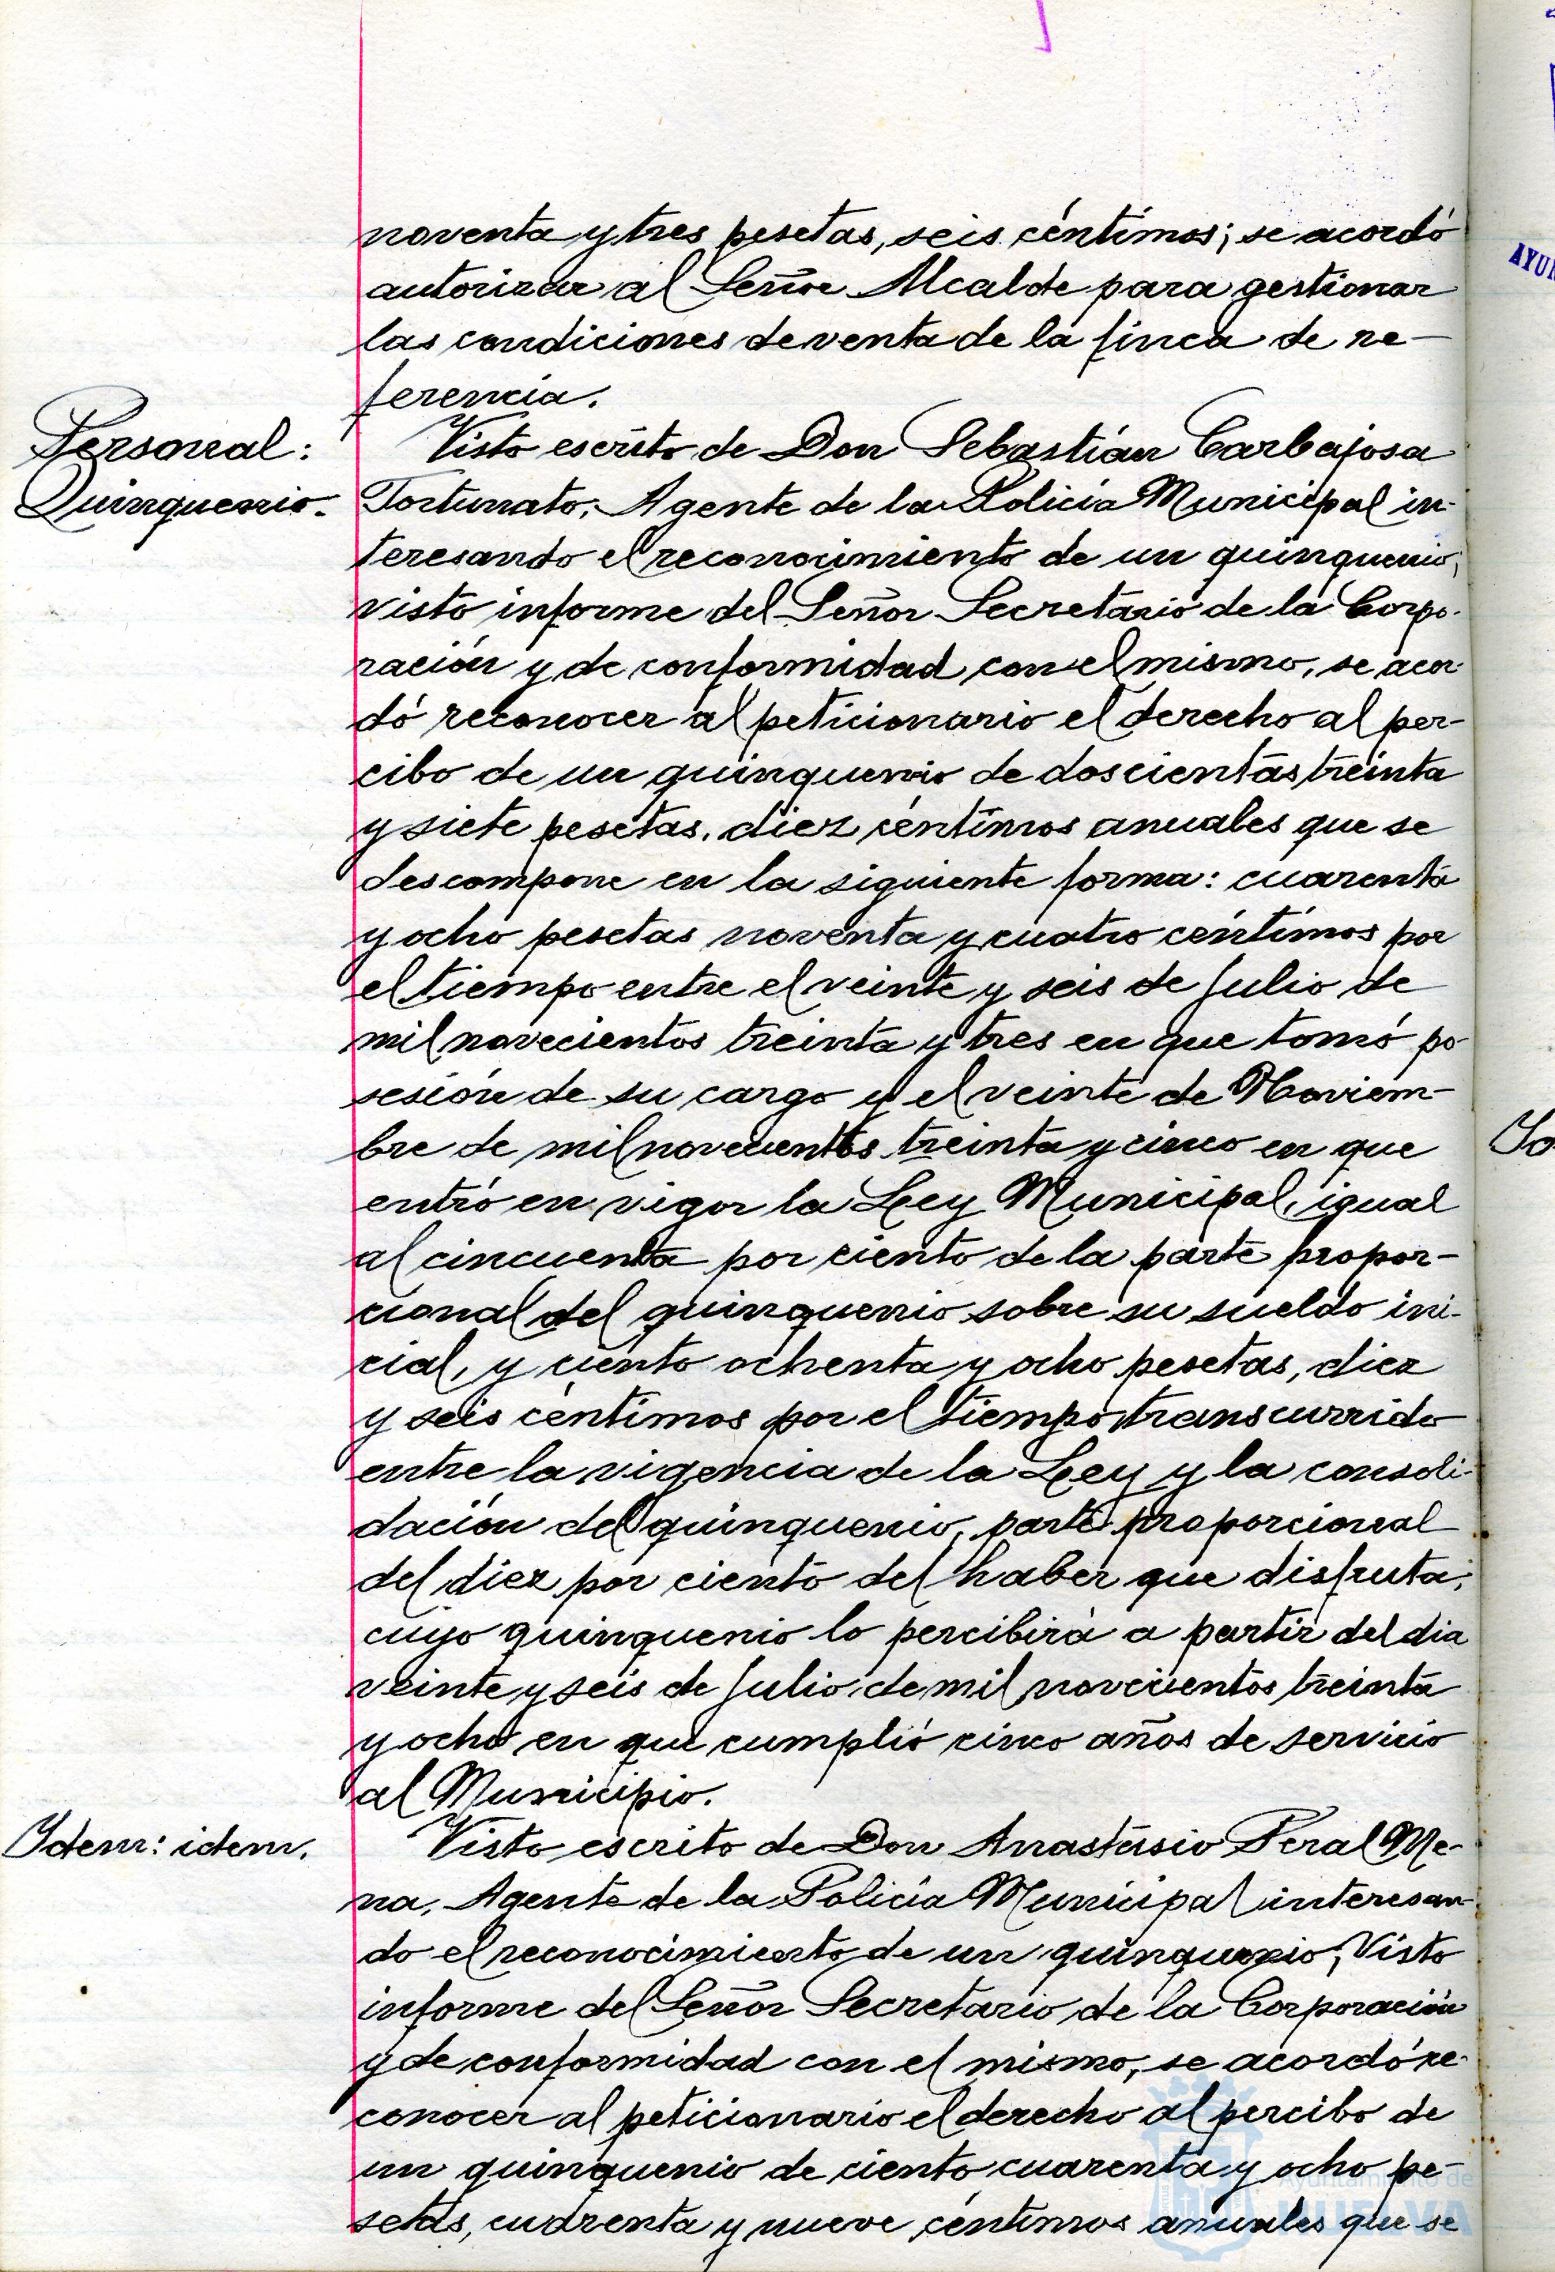 noventa y tres pesetas, seis céntimos; se acordó
autorizar al Señor Alcalde para gestionar
las condiciones de venta de la finca de re-
ferencia.
Personal:
Quinquenio.
Visto escrito de Don Sebastián Carbajosa
Fortunato, Agente de la Policía Municipal in-
teresando el reconocimiento de un quinquenio;
visto informe del Señor Secretario de la Corpo-
ración y de conformidad con el mismo, se acor-
dó reconocer al peticionario el derecho al per-
cibo de un quinquenio de doscientas treinta
y siete pesetas, diez céntimos anuales que se
descompone en la siguiente forma: cuarenta
y ocho pesetas noventa y cuatro céntimos por
el tiempo entre el veinte y seis de Julio de
mil novecientos treinta y tres en que tomó po-
sesión de su cargo y el veinte de Noviem-
bre de mil novecientos treinta y cinco en que
entró en vigor la Ley Municipal, igual
al cincuenta por ciento de la parte propor-
cional del quinquenio sobre su sueldo ini-
cial, y ciento ochenta y ocho pesetas, diez
y seis céntimos por el tiempo transcurrido
entre la vigencia de la Ley y la consoli-
dación del quinquenio, parte proporcional
del diez por ciento del haber que disfruta;
cuyo quinquenio lo percibirá a partir del dia
veinte y seis de Julio de mil novecientos treinta
y ocho en que cumplió cinco años de servicio
al Municipio.
Idem: idem.
Visto escrito de Don Anastasio Peral Me-
na, Agente de la Policía Municipal interesan-
do el reconocimiento de un quinquenio; Visto
informe del Señor Secretario de la Corporación
y de conformidad con el mismo, se acordó re-
conocer al peticionario el derecho al percibo de
un quinquenio de ciento cuarenta y ocho pe-
setas, cuarenta y nueve céntimos anuales que se
Ayuntamiento de
HUELVA
AYUN